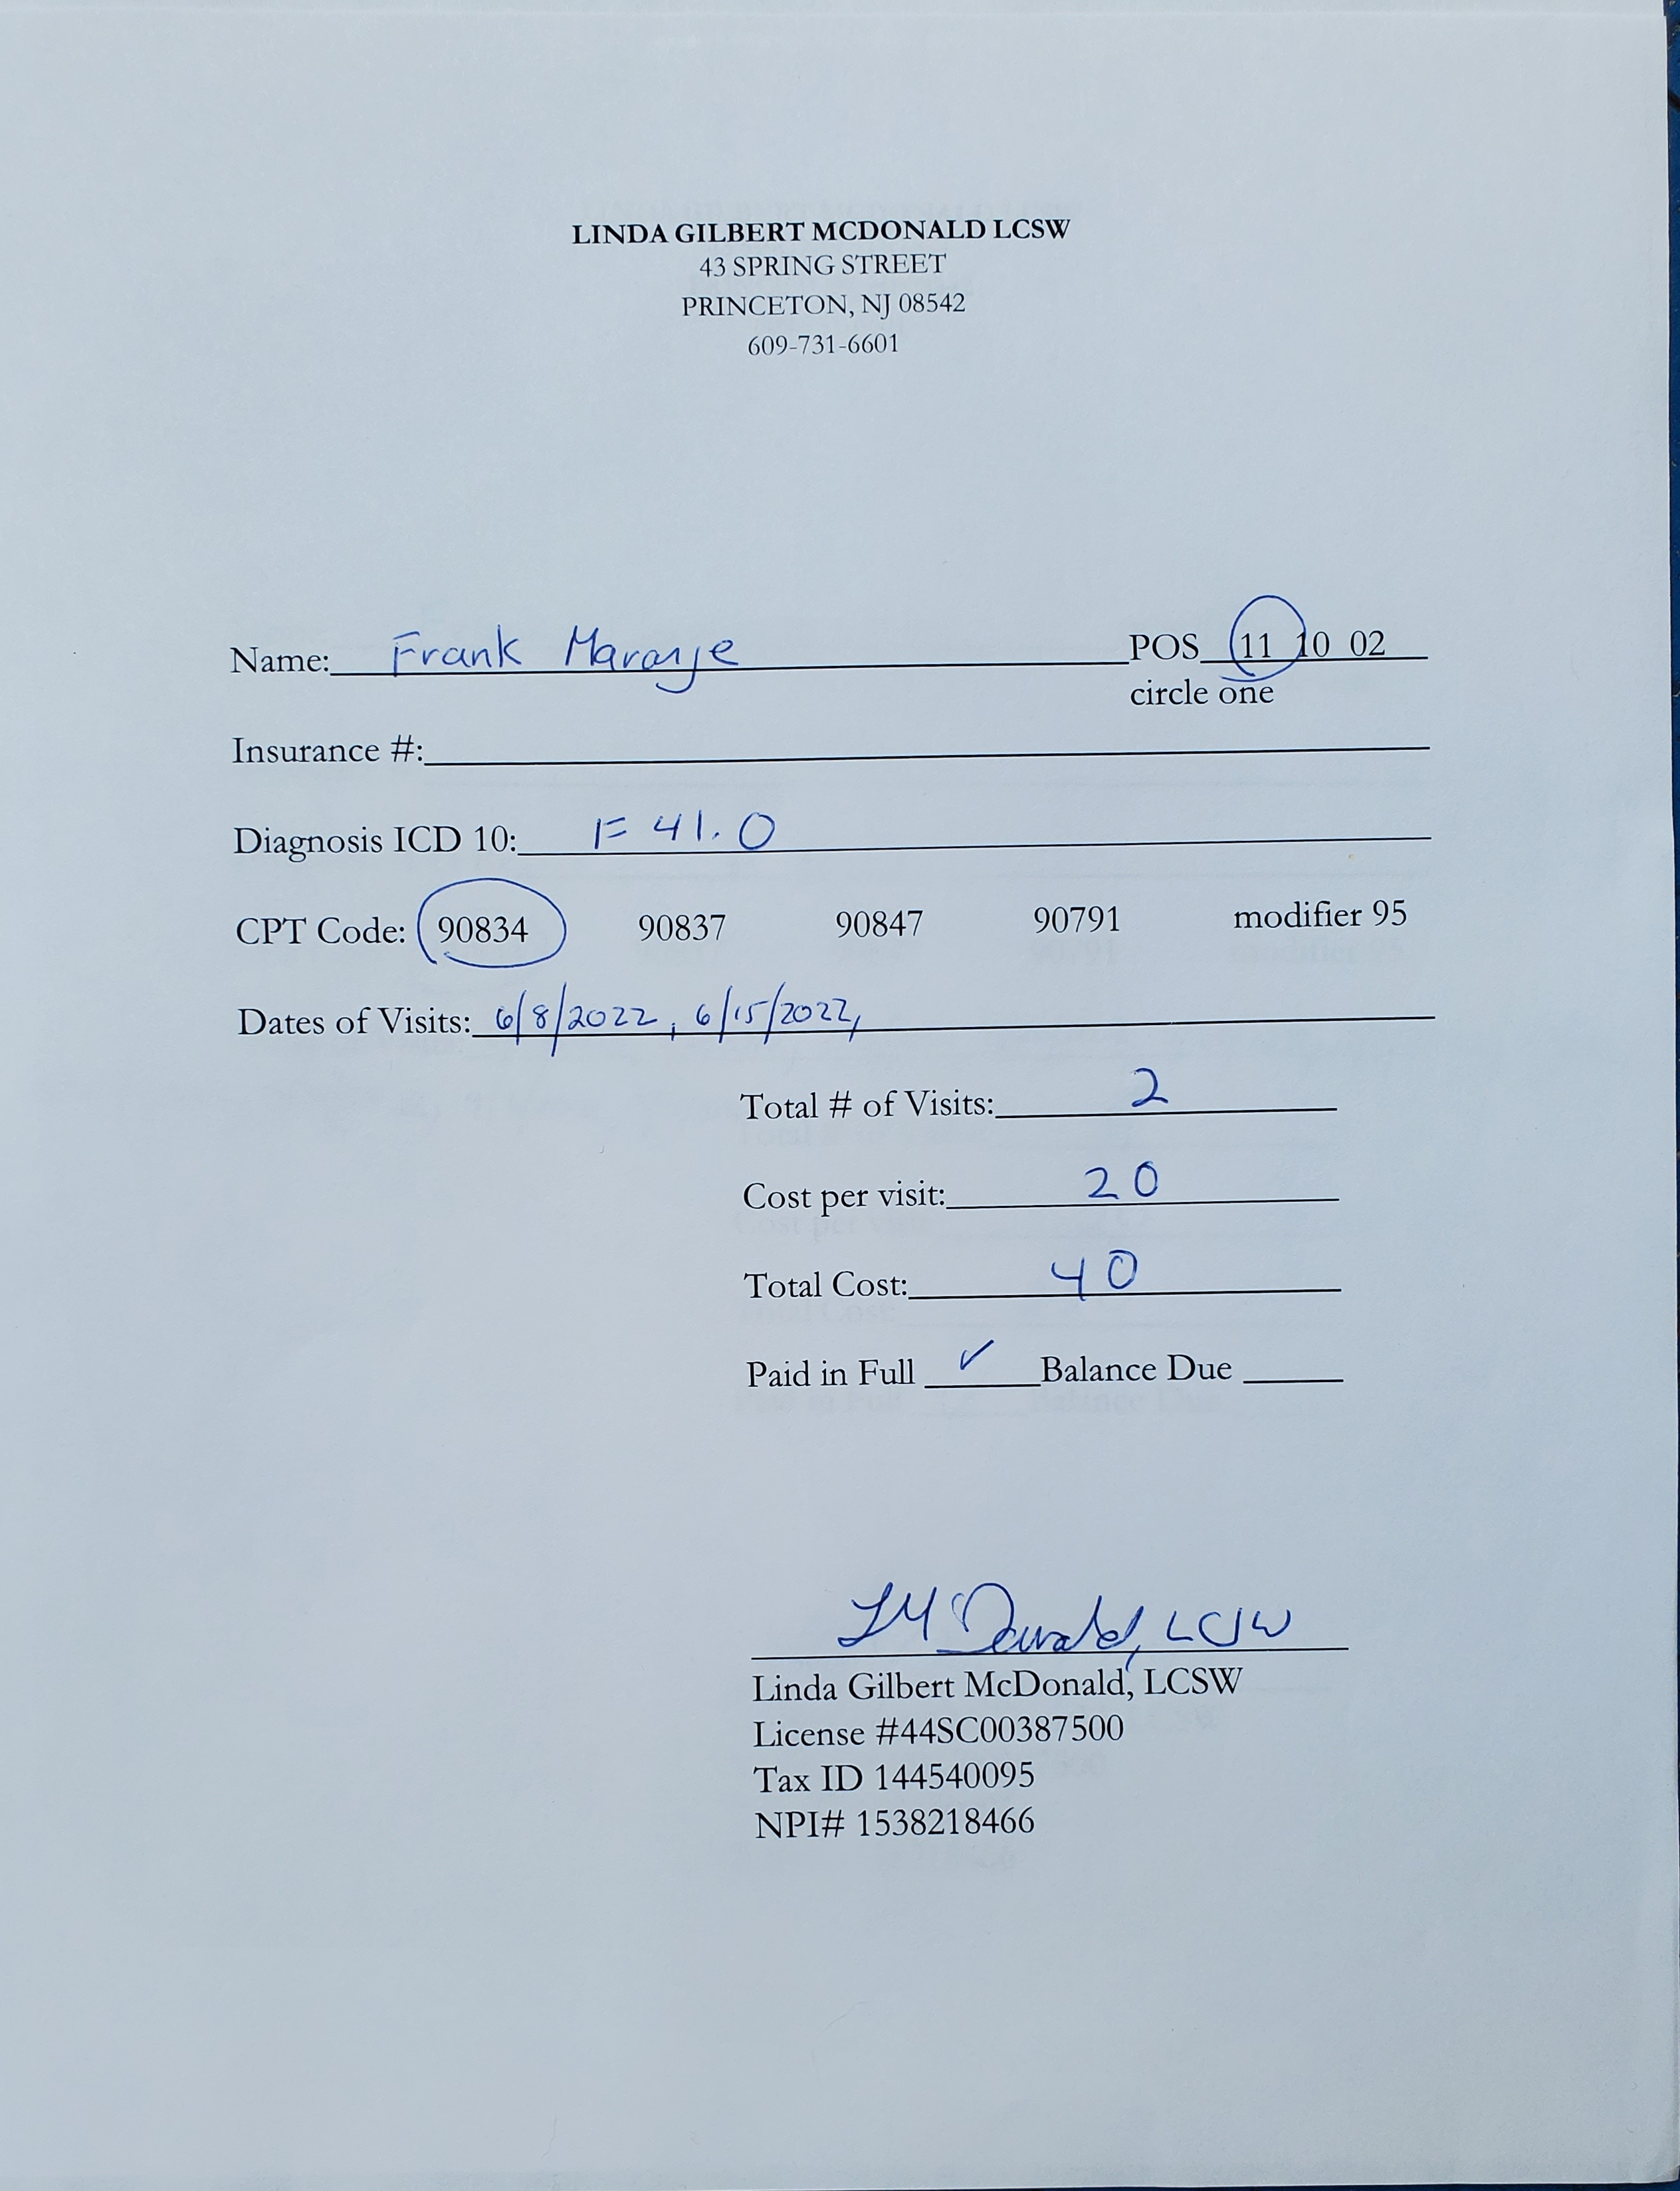 LINDA GILBERT MCDONALD LCSW
43 SPRING STREET
PRINCETON, NJ 08542
609-731-6601
Name: Frank Maranje POS 11 10 02
circle one
Insurance #:
Diagnosis ICD 10: F 41.0
CPT Code: 90834 90837 90847 90791 modifier 95
Dates of Visits: 6/8/2022, 6/15/2022,
Total # of Visits: 2
Cost per visit: 20
Total Cost: 40
Paid in Full ✓ Balance Due
LMcDonald, LCSW
Linda Gilbert McDonald, LCSW
License #44SC00387500
Tax ID 144540095
NPI# 1538218466